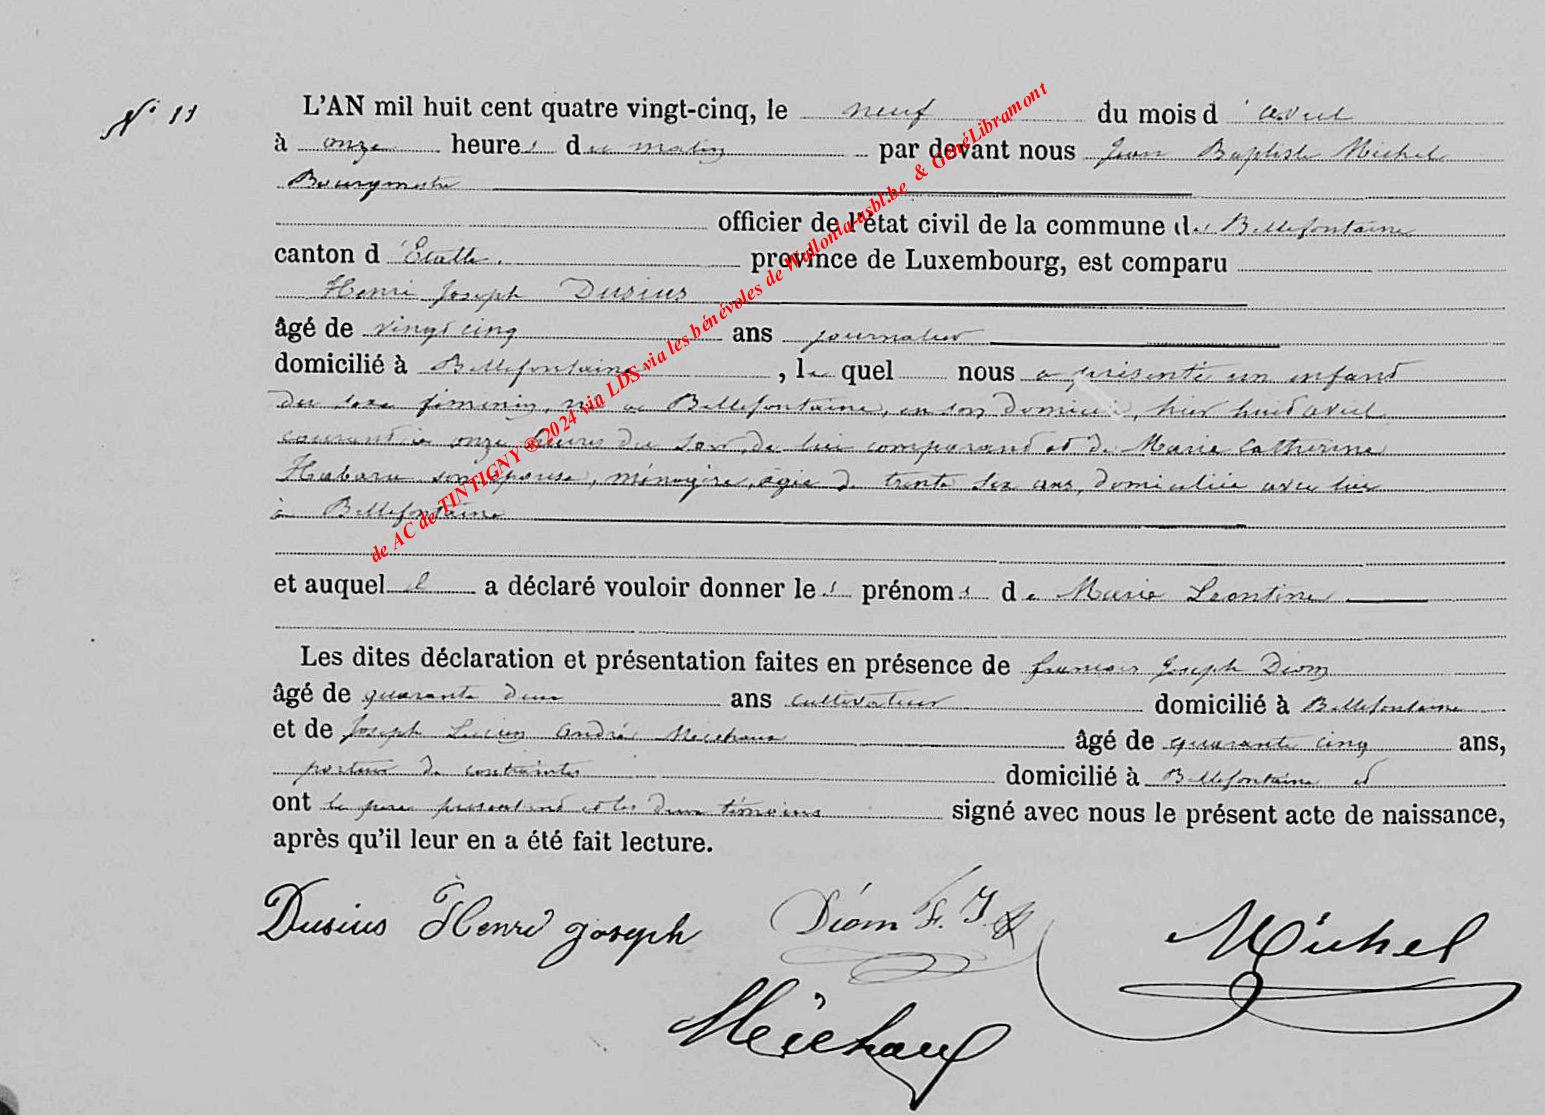 N° 11
L'AN mil huit cent quatre vingt-cinq, le neuf du mois d'avril
à onze heures du matin par devant nous Jean Baptiste Michel
Bourgmestre
officier de l'état civil de la commune de Bellefontaine
canton d'Etalle. province de Luxembourg, est comparu
Henri Joseph Dusius
âgé de vingt cinq ans journalier
domicilié à Bellefontaine, le quel nous a présenté un enfant
du sexe féminin, né à Bellefontaine, en son domicile, hier huit avril
courant à onze heures du soir, de lui comparant et de Marie Catherine
Habaru son épouse, ménagère, âgée de trente six ans, domiciliée avec lui
à Bellefontaine
et auquel il a déclaré vouloir donner les prénoms de Marie Leontine
Les dites déclaration et présentation faites en présence de françois Joseph Diom
âgé de quarante deux ans cultivateur domicilié à Bellefontaine
et de Joseph Lucien André Meichaux âgé de quarante cinq ans,
porteur de contraintes domicilié à Bellefontaine et
ont le père présentant et les deux témoins signé avec nous le présent acte de naissance,
après qu'il leur en a été fait lecture.
Dusius Henri joseph Diom F. J. Michel
Meichaux
de AC de TINTIGNY ® 2024 via LDS via les bénévoles de Wallonia-asbl.be & GénéLibramont